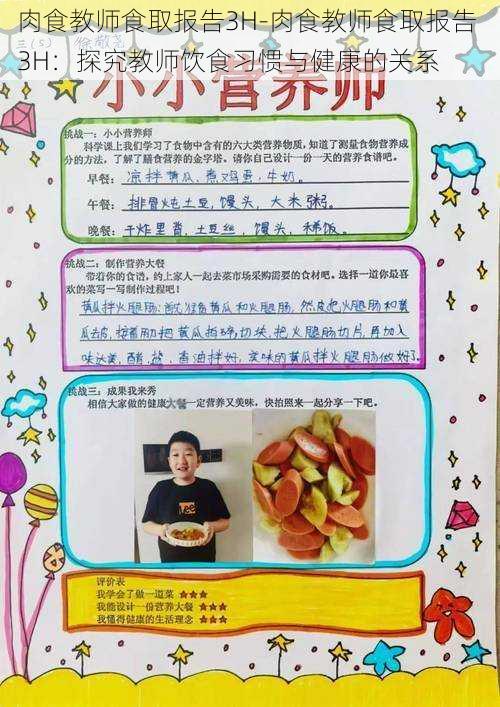 肉食教师食取报告3H-肉食教师食取报告
3H：探究教师饮食习惯与健康的关系
三(5) 徐敬尧
小小营养师
挑战一：小小营养师
科学课上我们学习了食物中含有的六大类营养物质，知道了测量食物营养成
分的方法，了解了膳食营养的金字塔。请你自己设计一份一天的营养食谱吧。
早餐：凉拌黄瓜、煮鸡蛋，牛奶。
午餐：排骨炖土豆，馒头，大米粥。
晚餐：干炸里脊，土豆丝，馒头，稀饭。
挑战二：制作营养大餐
带着你的食谱，约上家人一起去菜市场采购需要的食材吧。选择一道你最喜
欢的菜写一写制作过程吧！
黄瓜拌火腿肠：首先准备黄瓜和火腿肠，然后把火腿肠和黄
瓜去皮，接着把黄瓜拍碎切块，把火腿肠切片，再加入
味达美，醋，盐，香油拌好，美味的黄瓜拌火腿肠做好了。
挑战三：成果我来秀
相信大家做的健康大餐一定营养又美味，快拍照来一起分享一下吧。
Lee
评价表
我学会了做一道菜 ★★★
我能设计一份营养大餐 ★★★
我懂得健康的生活理念 ★★★